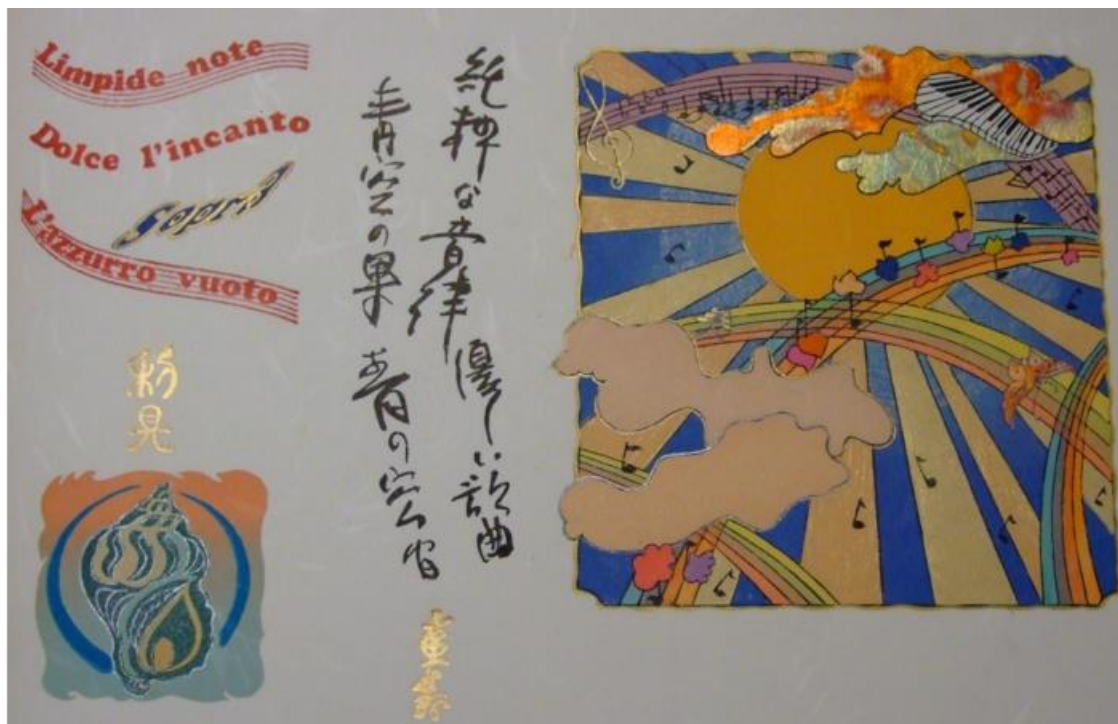 Limpide note
Dolce l'incanto
Sopra
L'azzurro vuoto
純粋な音律 優しい歌曲
青空の果 青の